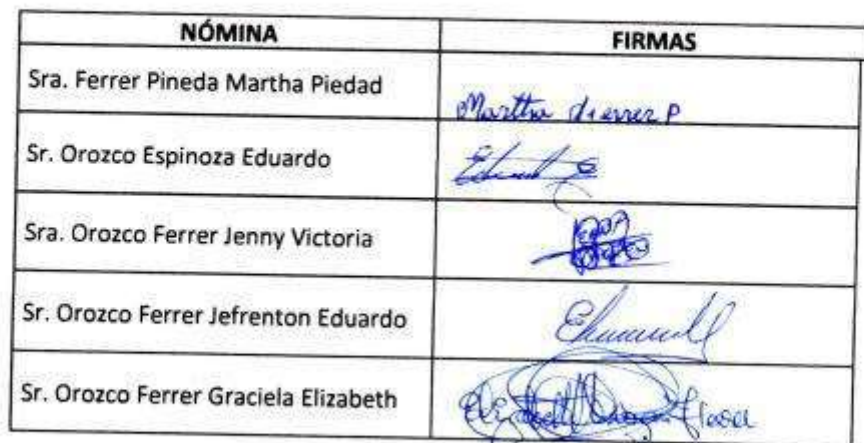 NÓMINA FIRMAS
Sra. Ferrer Pineda Martha Piedad
Martha Ferrer P
Sr. Orozco Espinoza Eduardo
Sra. Orozco Ferrer Jenny Victoria
Sr. Orozco Ferrer Jefrenton Eduardo
Sr. Orozco Ferrer Graciela Elizabeth